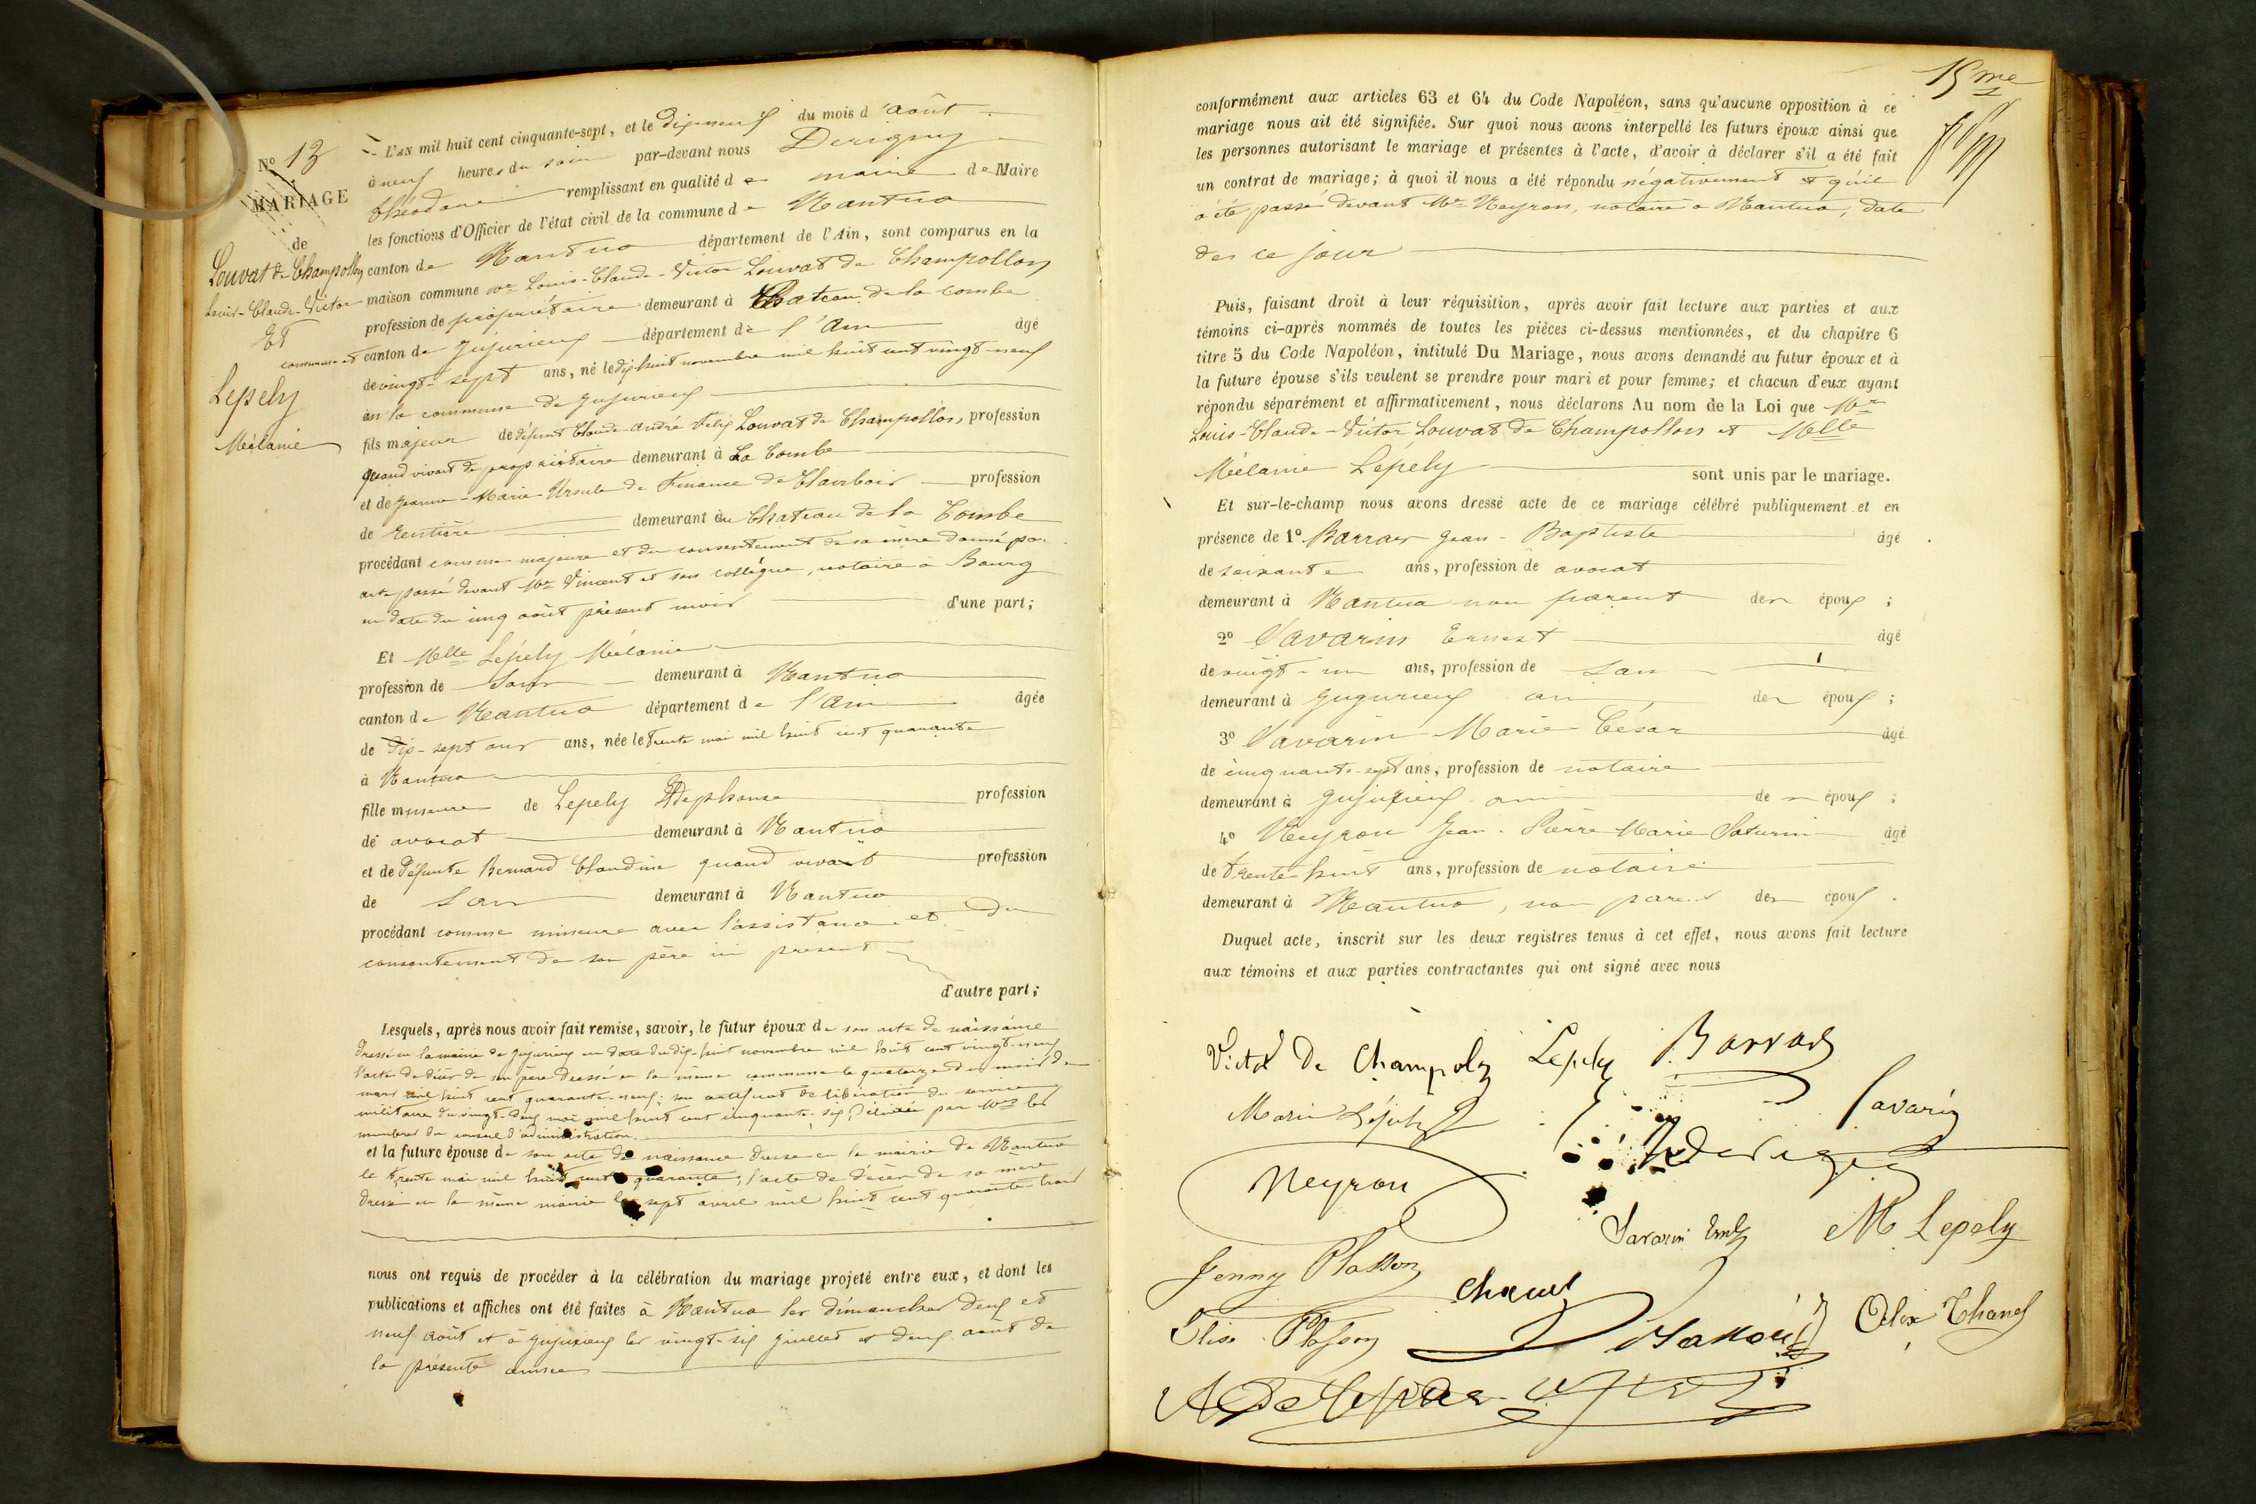 N° 13
MARIAGE
de
Louvat de Champollon
Louis-Claude-Victor
Et
Lepely
Mélanie
L'AN mil huit cent cinquante-sept, et le dix neuf du mois d'août
à neuf heures du soir par-devant nous Derigny
théodore remplissant en qualité de maire de Maire
les fonctions d'Officier de l'état civil de la commune de Nantua
canton de Nantua département de l'Ain, sont comparus en la
maison commune Mr Louis-Claude-Victor Louvat de Champollon
profession de propriétaire demeurant à Chateau de la combe
commune et canton de Jujurieux département de l'Ain âgé
de vingt-sept ans, né le dix huit novembre mil huit cent vingt-neuf
en la commune de Jujurieux
fils majeur de défunt Claude-André Félix Louvat de Champollon, profession
quand vivait de propriétaire demeurant à La Combe
et de Jeanne-Marie-Ursule de Finance de Clairbois profession
de Rentière demeurant au Chateau de la Combe
procédant comme majeur et du consentement de sa mère donné par
acte passé devant Me Vincent et son collégue, notaire à Bourg
en date du cinq août présent mois d'une part;
Et Melle Lepely Mélanie
profession de sans demeurant à Nantua
canton de Nantua département de l'Ain âgée
de dix-sept ans ans, née le trente mai mil huit cent quarante
à Nantua
fille mineure de Lepely profession
de avocat demeurant à Nantua
et de défunte Bernard Claudine quand vivait profession
de sans demeurant à Nantua
procédant comme mineure avec l'assistance et du
consentement de son père ici présent
d'autre part;
Lesquels, après nous avoir fait remise, savoir, le futur époux de son acte de naissance
dressé en la mairie de Jujurieux en date du dix-huit novembre mil huit cent vingt-neuf
l'acte de décès de son père dressé en la même commune le quatorze du mois de
mars mil huit cent quarante-neuf; son certificat de libération du service
militaire du vingt-deux mai mil huit cent cinquante-six, délivré par Mrs les
membres du conseil d'administration
et la future épouse de son acte de naissance dressé en la mairie de Nantua
le trente mai mil huit cent quarante, l'acte de décès de sa mère
dressé en la même mairie le sept avril mil huit cent quarante trois
nous ont requis de procéder à la célébration du mariage projeté entre eux, et dont les
publications et affiches ont été faites à Nantua les dimanches deux et
neuf août et à Jujurieux les vingt-six juillet et deux août de
la présente année
15me
conformément aux articles 63 et 64 du Code Napoléon, sans qu'aucune opposition à ce
mariage nous ait été signifiée. Sur quoi nous avons interpellé les futurs époux ainsi que
les personnes autorisant le mariage et présentes à l'acte, d'avoir à déclarer s'il a été fait
un contrat de mariage; à quoi il nous a été répondu négativement et qu'il
a été passé devant Me Neyron, notaire à Nantua, date
des ce jour
Puis, faisant droit à leur réquisition, après avoir fait lecture aux parties et aux
témoins ci-après nommés de toutes les pièces ci-dessus mentionnées, et du chapitre 6
titre 5 du Code Napoléon, intitulé Du Mariage, nous avons demandé au futur époux et à
la future épouse s'ils veulent se prendre pour mari et pour femme; et chacun d'eux ayant
répondu séparément et affirmativement, nous déclarons Au nom de la Loi que Mr
Louis-Claude-Victor Louvat de Champollon et Melle
Mélanie Lepely sont unis par le mariage.
Et sur-le-champ nous avons dressé acte de ce mariage célébré publiquement et en
présence de 1° Jean-Baptiste âgé
de soixante ans, profession de avocat
demeurant à Nantua non parent des époux;
2° Savarin Ernest âgé
de vingt-un ans, profession de sans
demeurant à Jujurieux ami des époux;
3° Savarin Marie César âgé
de cinquante-sept ans, profession de notaire
demeurant à Jujurieux ami des époux;
4° Neyron Jean-Pierre Marie Saturnin âgé
de trente huit ans, profession de notaire
demeurant à Nantua, non parent des époux.
Duquel acte, inscrit sur les deux registres tenus à cet effet, nous avons fait lecture
aux témoins et aux parties contractantes qui ont signé avec nous
Victor De Champolon Lepely
Savarin
Neyron
Savarin M Lepely
Jenny Plasson
Elise Plasson